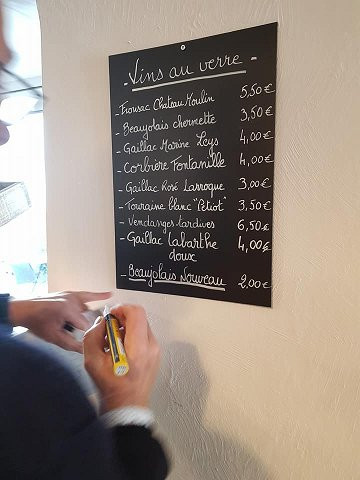 - Vins au verre -
- Fronsac Chateau Moulin 5,50€
- Beaujolais chermette 3,50€
- Gaillac Marine Leys 4,00€
- Corbière Fontanille 4,00€
- Gaillac Rosé Larroque 3,00€
- Touraine blanc "Petiot" 3,50€
- Vendanges tardives 6,50€
- Gaillac Labarthe 4,00€
doux
- Beaujolais Nouveau 2,00€